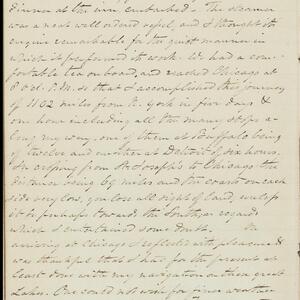 dinner at the inn embarked. The steamer
was a neat well ordered vessel, and I thought its
engine remarkable for the quiet manner in
which it performed its work. We had a com-
fortable tea on board, and reached Chicago at
8 o'cl. P.M. so that I accomplished the journey
of 1102 miles from N. York in five days &
one hour including all the many stops a-
long my way, one of them at Buffalo being
of twelve and another at Detroit of six hours.
In crossing from St. Joseph's to Chicago the
distance being 69 miles and the coast on each
side very low, you lose all sight of land, unless
it be perhaps towards the South, as regards
which I entertained some doubt. On
arriving at Chicago I reflected with pleasure &
was thankful that I had for the present at
least done with my navigation on these great
Lakes. One could not wish for finer weather